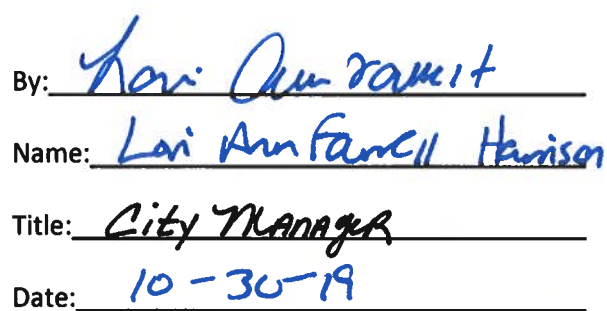 By: Lori Ann
Name: Lori Ann Farrell Harrison
Title: City Manager
Date: 10-30-19